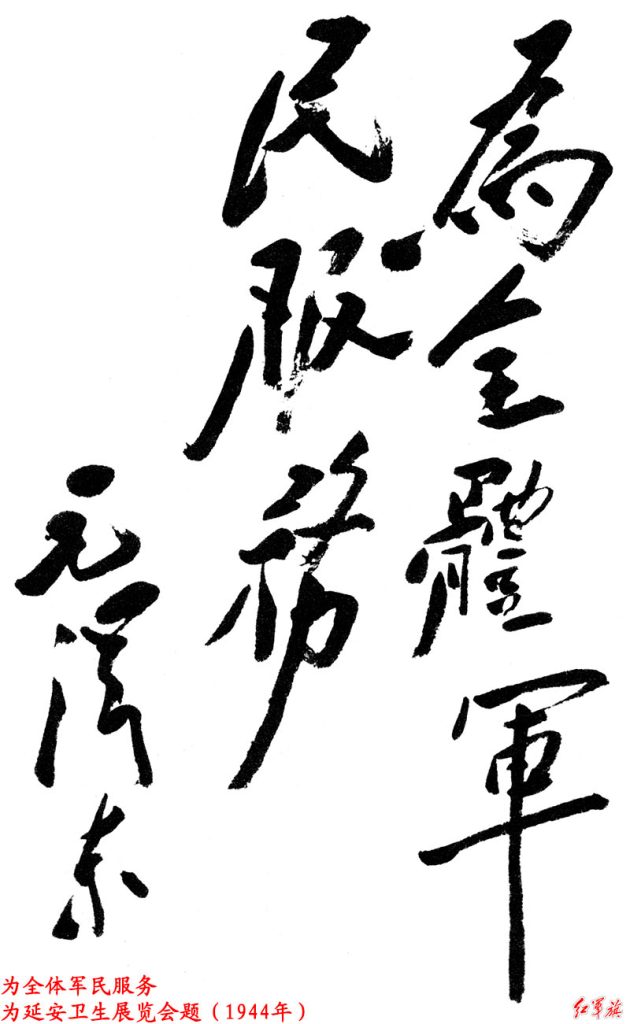 為全體軍
民服務
毛澤东
为全体军民服务
为延安卫生展览会题（1944年）
红军旗